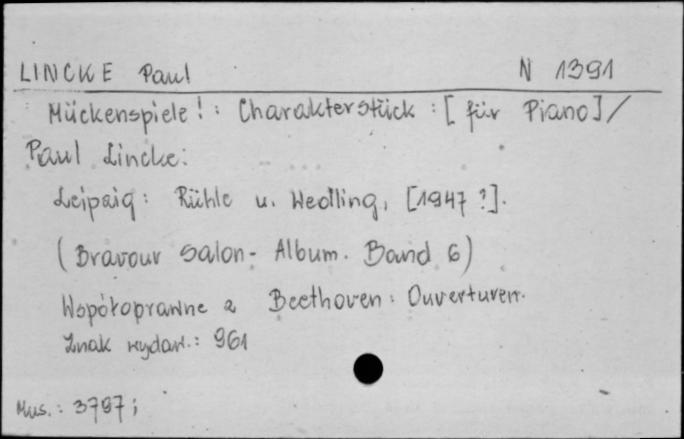 LINCKE Paul N 1391
Mückenspiele! : Charakterstück : [für Piano] /
Paul Lincke:
Leipzig: Rühle u. Wedling, [1947 ?].
(Bravour Salon- Album. Band 6)
Współoprawne z Beethoven: Ouverturen.
Znak wydaw.: 961
Mus.: 3797;